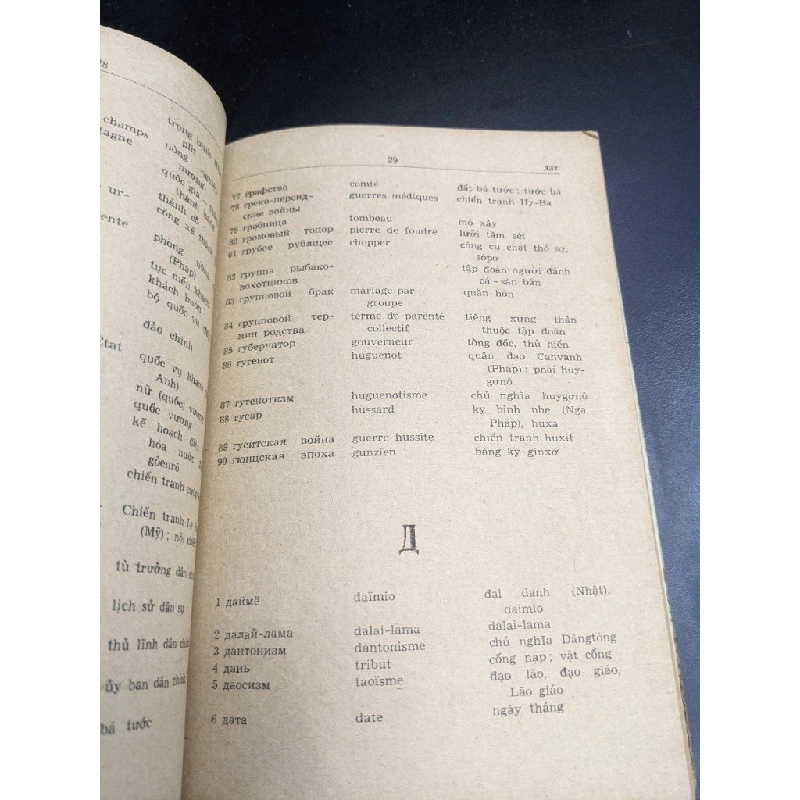 28
champs
trọng
agne
nông
phòng
(Pháp)
đảo chính
Anh)
nữ (quốc) vương
quốc vương
kế hoạch
hóa nước
chiến tranh
Chiến tranh
(Mỹ) ; nội
tù trưởng dân
lịch sử dân sự
thủ lĩnh dân
ủy ban dân
bá tước
29
дат
77 графство comté đất bá tước ; tước bá
78 греко-персид- guerres médiques chiến tranh Hy-Ba
ские войны
79 гробница tombeau mộ xây
80 громовый топор pierre de foudre lưỡi tầm sét
81 грубое рубящее chopper công cụ chặt thô sơ,
sôpơ
82 группа рыбако- tập đoàn người đánh
вохотников cá - săn bắn
83 групповой брак mariage par quần hôn
groupe
84 групповой тер- terme de parenté tiếng xưng thân
мин родства collectif thuộc tập đoàn
85 губернатор gouverneur tổng đốc, thủ hiến
86 гугенот huguenot quân đạo Canvanh
(Pháp) ; phái huy-
gơnô
87 гугенотизм huguenotisme chủ nghĩa huygơnô
88 гусар hussard kỵ binh nhẹ (Nga
Pháp), huxa
89 гуситская война guerre hussite chiến tranh huxit
90 гюнцская эпоха gunzien băng kỳ ginxơ
Д
1 даймё daïmio đại danh (Nhật),
daimio
2 далай-лама dalai-lama dalai-lama
3 дантонизм dantonisme chủ nghĩa Đăngtông
4 дань tribut cống nạp ; vật cống
5 даосизм taoïsme đạo lão, đạo giáo,
Lão giáo
6 дата date ngày tháng